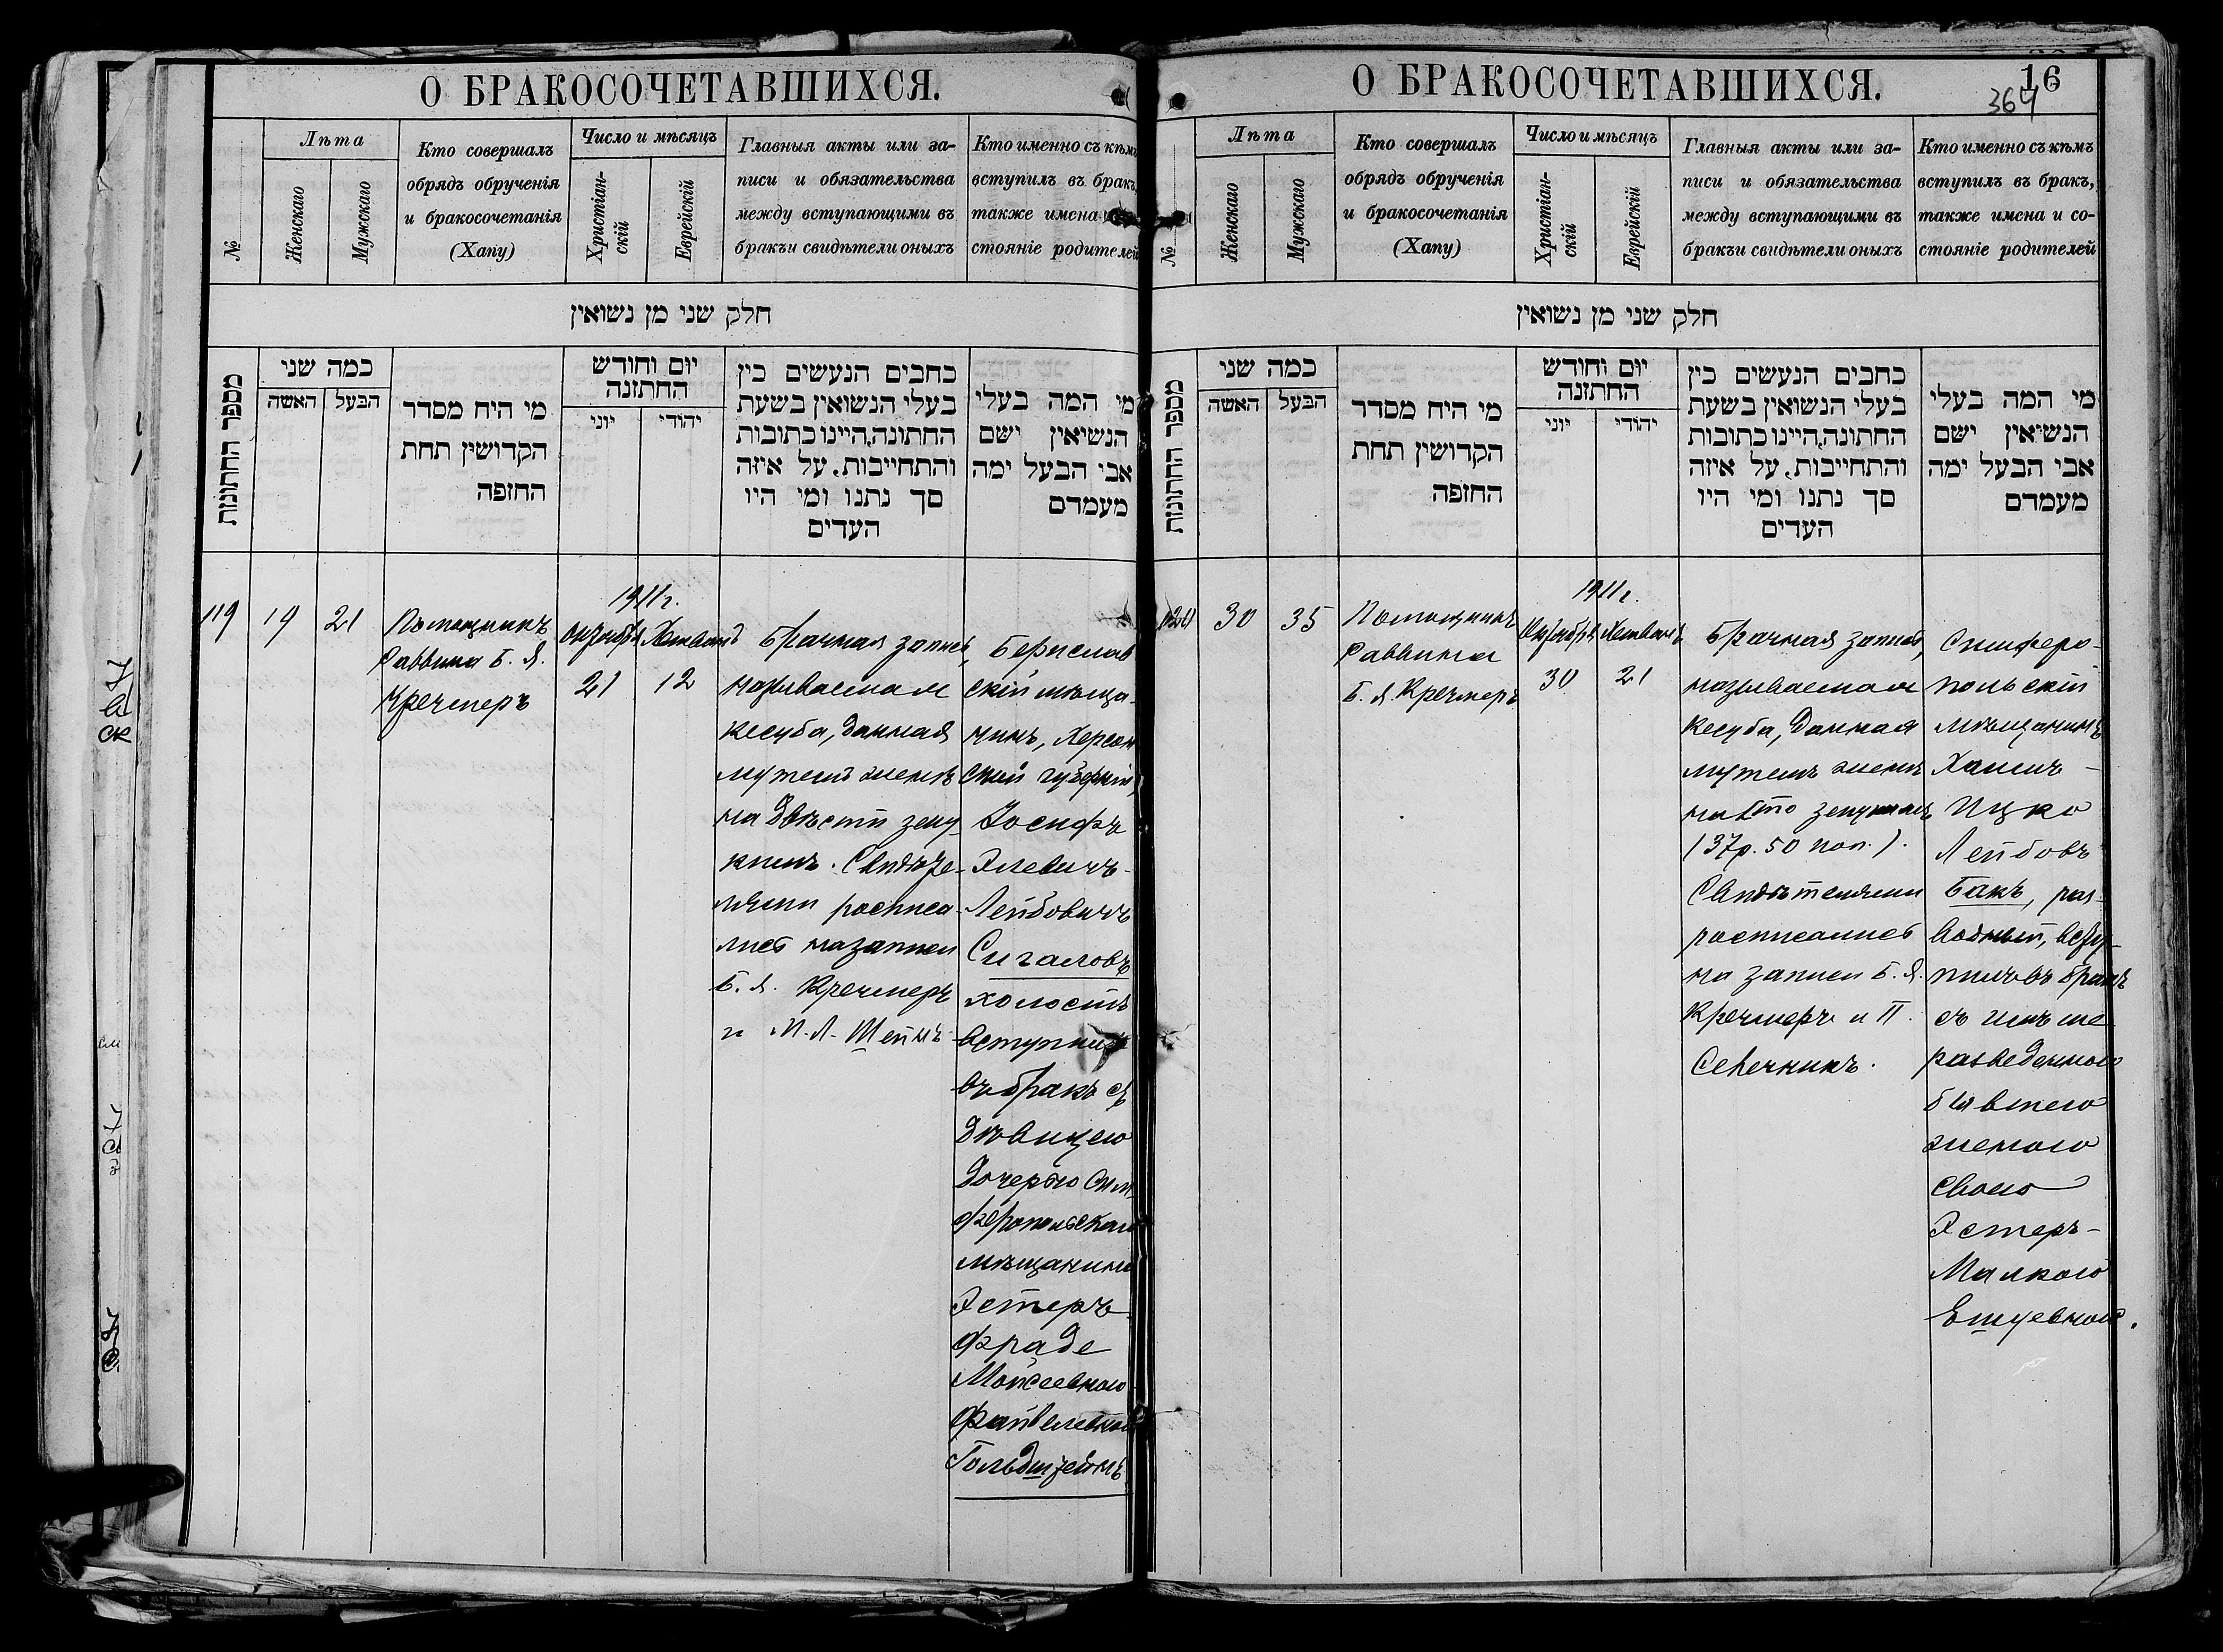 О БРАКОСОЧЕТАВШИХСЯ.
№
Лѣта
Женскаго
Мужскаго
Кто совершалъ
обрядъ обрученія
и бракосочетанія
(Хапу)
Число и мѣсяцъ
Христіан-
скій
Еврейскій
Главныя акты или за-
писи и обязательства
между вступающими въ
бракъ и свидѣтели оныхъ
Кто именно съ кѣмъ
вступилъ въ бракъ,
также имена и со-
стояніе родителей
חלק שני מן נשואין
מספר החתונות
כמה שני
האשה
הבעל
מי היח מסדר
הקדושין תחת
החופה
יום וחודש
החתונה
יוני
יהודי
כחבים הנעשים כין
בעלי הנשואין בשעת
החתונה, היינו כתובות
והתחייבות, על איזה
סך נתנו ומי היו
העדים
מי המה בעלי
הנשיאין ישם
אבי הבעל ימה
מעמדם
119
19
21
Помощникъ
Раввина Б. Я.
Кречмеръ
1911 г.
Октября
21
Хешванъ
12
Брачная запись,
называемая
кесуба, данная
мужемъ женѣ
на двѣсти зеку-
кимъ. Свидѣте-
лями росписа-
лись на записи
Б. Я. Кречмеръ
и М. Л. Штейнъ
Берислав
скій мѣща-
нинъ, Херсон
ской губерніи,
Іосифъ
Элевичъ-
Лейбовичъ
Сигаловъ
холостъ
вступилъ
въ бракъ съ
дѣвицею
дочерью Сим
феропольскаго
мѣщанина
Эстеръ-
Фраде
Мойсеевною
Файвелевною
Гольдштейнъ
О БРАКОСОЧЕТАВШИХСЯ.
16
364
№
Лѣта
Женскаго
Мужскаго
Кто совершалъ
обрядъ обрученія
и бракосочетанія
(Хапу)
Число и мѣсяцъ
Христіан-
скій
Еврейскій
Главныя акты или за-
писи и обязательства
между вступающими въ
бракъ и свидѣтели оныхъ
Кто именно съ кѣмъ
вступилъ въ бракъ,
также имена и со-
стояніе родителей
חלק שני מן נשואין
מספר החתונות
כמה שני
האשה
הבעל
מי היח מסדר
הקדושין תחת
החופה
יום וחודש
החתונה
יוני
יהודי
כחבים הנעשים כין
בעלי הנשואין בשעת
החתונה, היינו כתובות
והתחייבות, על איזה
סך נתנו ומי היו
העדים
מי המה בעלי
הנשיאין ישם
אבי הבעל ימה
מעמדם
120
30
35
Помощникъ
Раввина
Б. Я. Кречмеръ
1911 г.
Октября
30
Хешванъ
21
Брачная запись,
называемая
кесуба, данная
мужемъ женѣ
на сто зекукимъ
(37 р. 50 коп.).
Свидѣтелями
росписались
на записи Б. Я.
Кречмеръ и П.
Свечникъ.
Симферо-
польскій
мѣщанинъ
Хаимъ-
Ицко
Лейбовъ
Бакъ, раз-
водный, всту-
пилъ въ бракъ
съ имъ же
разведенною
бывшею
женою
своею
Эстеръ-
Малкою
Ешуевною.